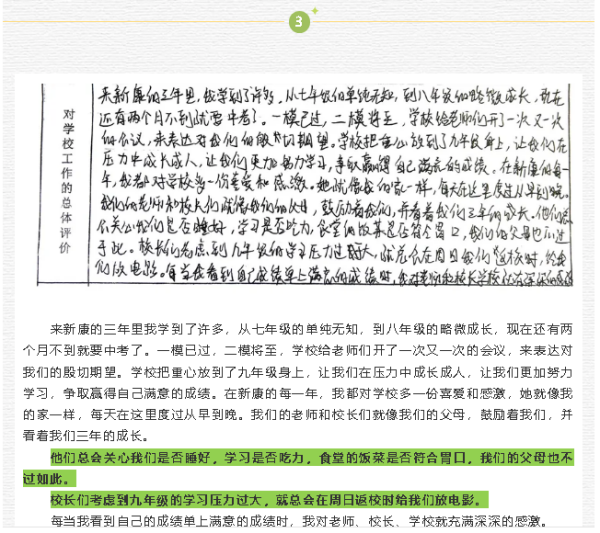 3
对学校工作的总体评价
来新康的三年里,我学到了许多,从七年级的单纯无知,到八年级的略微成长,现在
还有两个月不到就要中考了。一模已过,二模将至,学校给老师们开了一次又一次
的会议,来表达对我们的殷切期望。学校把重心放到了九年级身上,让我们在
压力中成长成人,让我们更加努力学习,争取赢得自己满意的成绩。在新康的每一
年,我都对学校多一份喜爱和感激。她就像我的家一样,每天在这里度过从早到晚。
我们的老师和校长们就像我们的父母,鼓励着我们,并看着我们三年的成长。他们总
会关心我们是否睡好,学习是否吃力,食堂的饭菜是否符合胃口,我们的父母也不过
于此。校长们考虑到九年级的学习压力过大,就总会在周日我们返校时,给我
们放电影。每当我看到自己成绩单上满意的成绩时,我对老师和校长学校充满深深的感激
来新康的三年里我学到了许多，从七年级的单纯无知，到八年级的略微成长，现在还有两
个月不到就要中考了。一模已过，二模将至，学校给老师们开了一次又一次的会议，来表达对
我们的殷切期望。学校把重心放到了九年级身上，让我们在压力中成长成人，让我们更加努力
学习，争取赢得自己满意的成绩。在新康的每一年，我都对学校多一份喜爱和感激，她就像我
的家一样，每天在这里度过从早到晚。我们的老师和校长们就像我们的父母，鼓励着我们，并
看着我们三年的成长。
他们总会关心我们是否睡好，学习是否吃力，食堂的饭菜是否符合胃口，我们的父母也不
过如此。
校长们考虑到九年级的学习压力过大，就总会在周日返校时给我们放电影。
每当我看到自己的成绩单上满意的成绩时，我对老师、校长、学校就充满深深的感激。